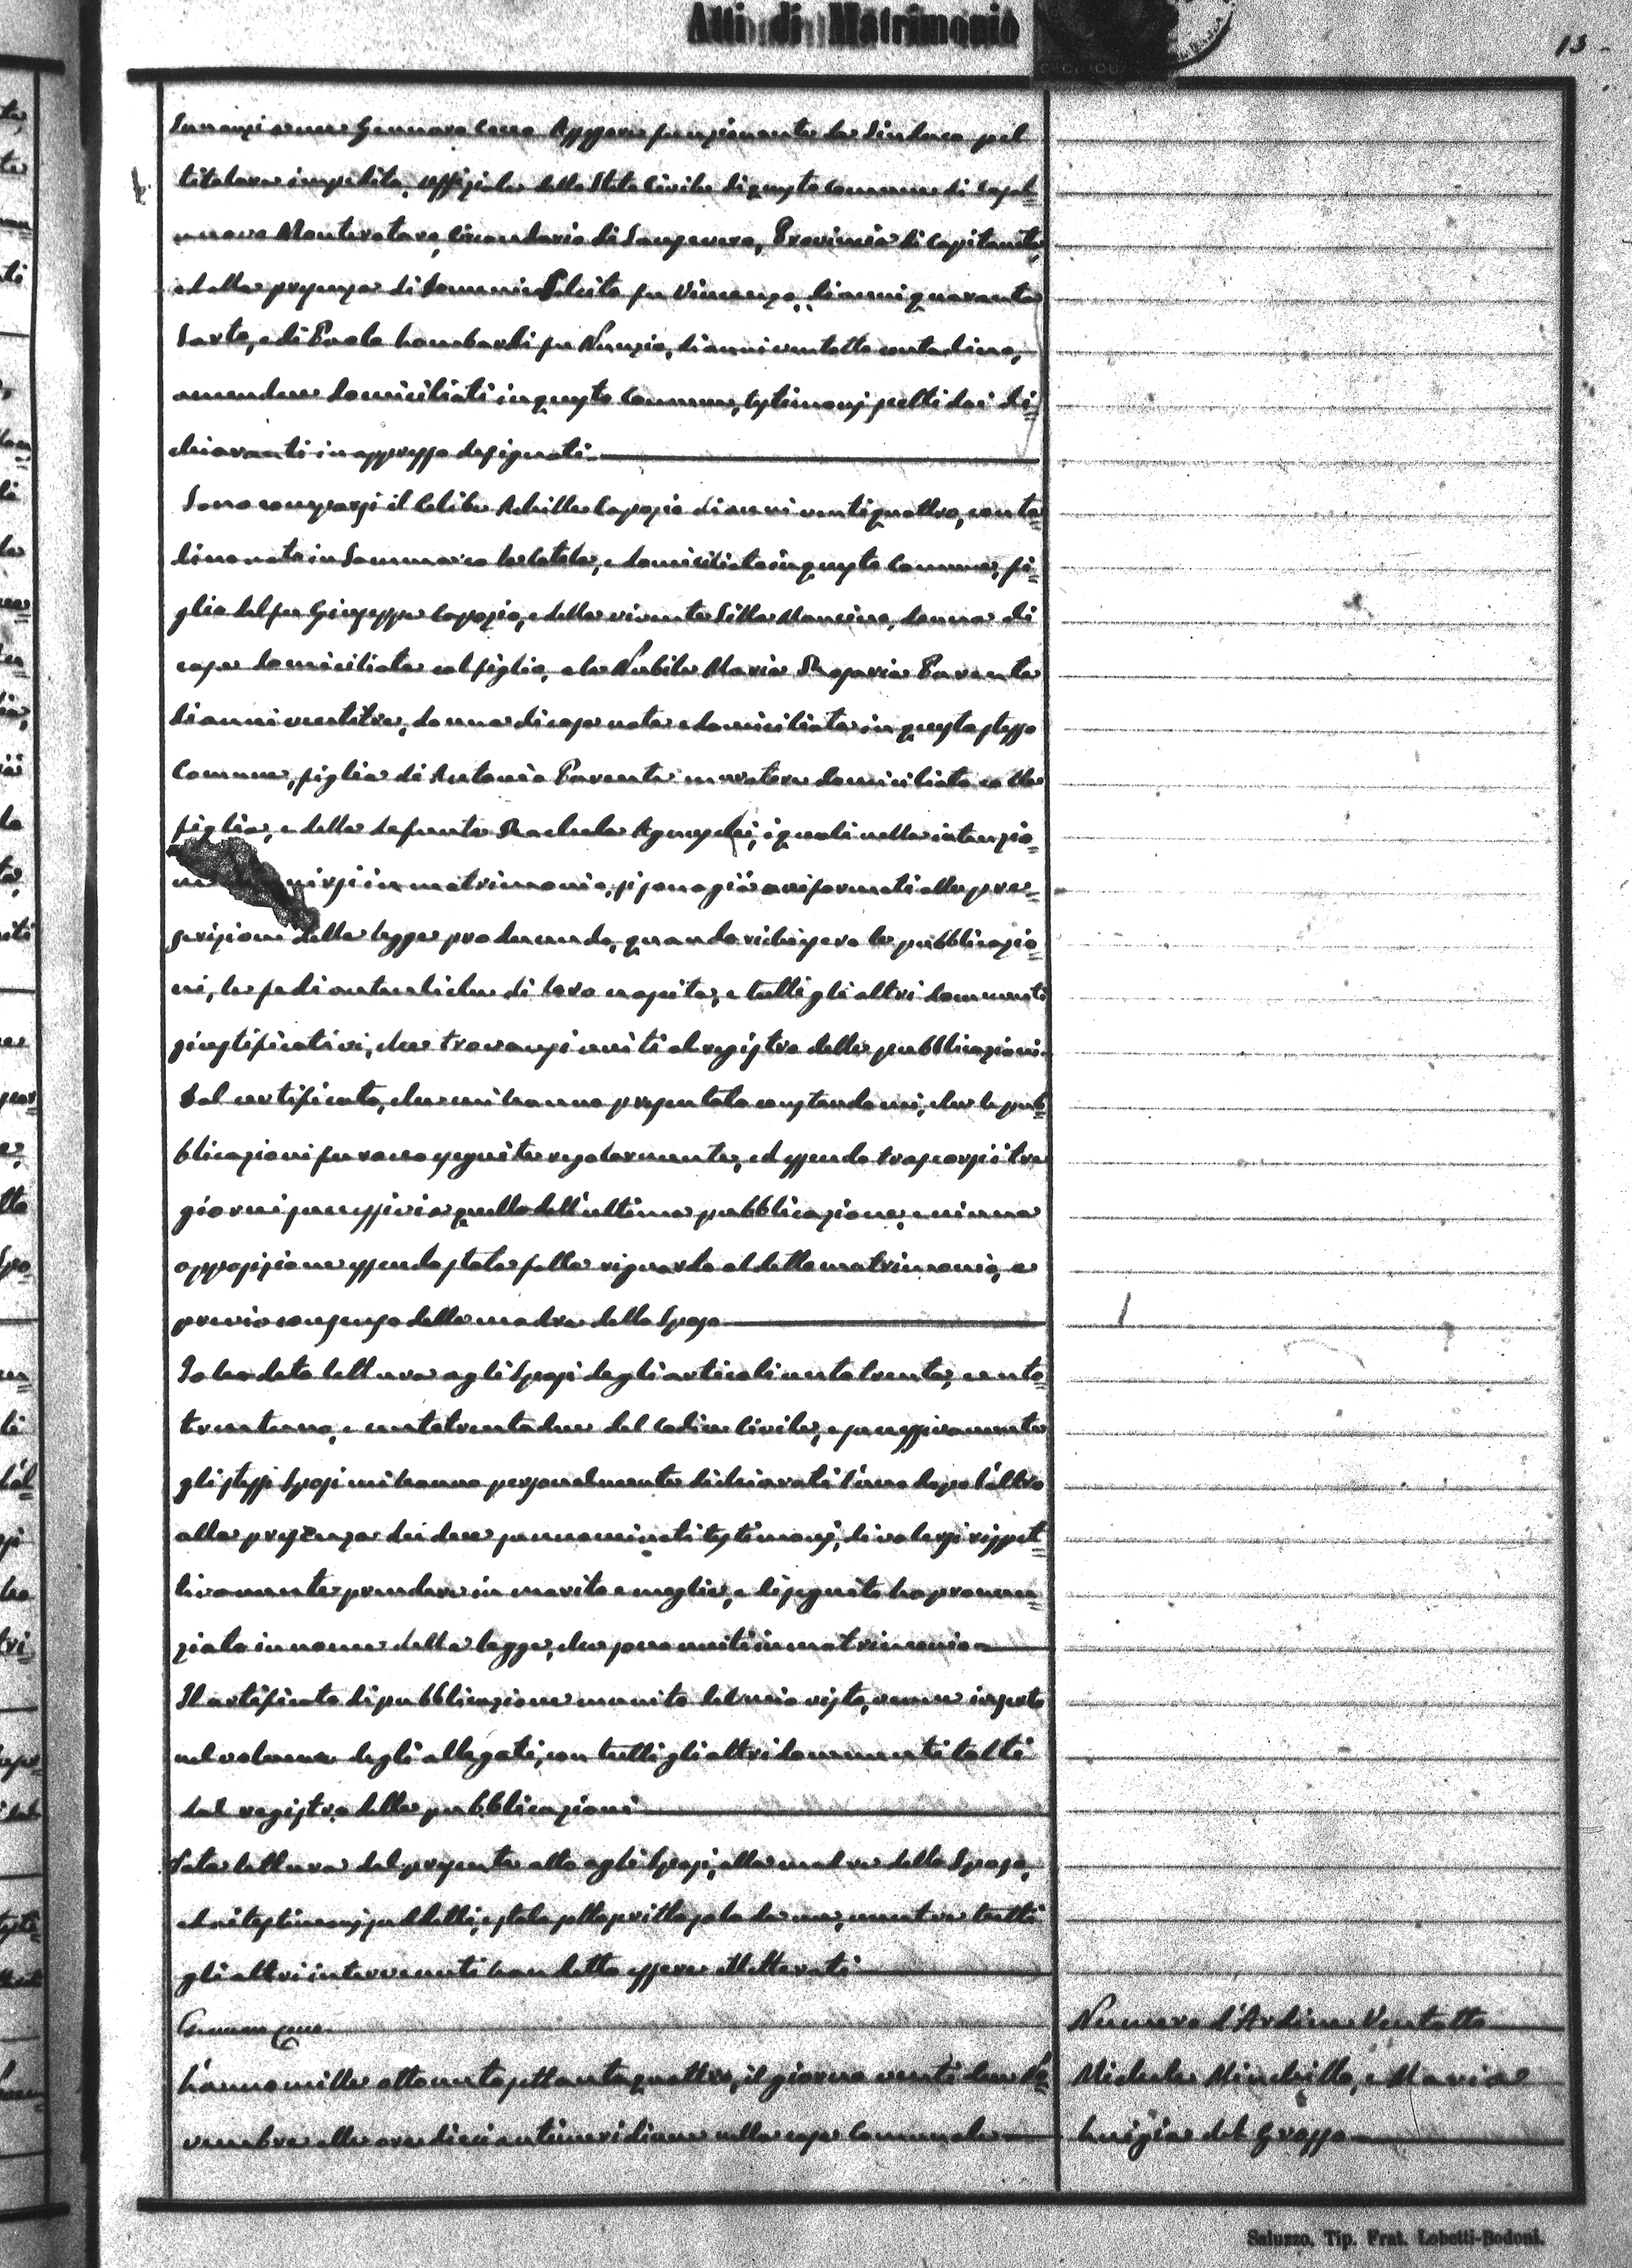 Atti di Matrimonio
13
Innanzi a me Gennaro Cocco Assessore funzionante da Sindaco pel
titolare impedito, uffiziale dello Stato Civile di questo Comune di Casal=
nuovo Monterotaro, Circondario di Sansevero, Provincia di Capitanata,
e della presenza di Domenico Celeste fu Vincenzo, di anni quaranta
Sarto, e di Paolo Lombardi fu Nunzio, di anni ventotto contadino,
amendue domiciliati in questo Comune, testimonj scelti dai di=
chiaranti in appresso designati
Sono comparsi il Celibe Achille Capozio di anni ventiquattro, conta=
dino nato in Sammarco la Catola, e domiciliato in questo Comune, fi=
glio del fu Giuseppe Capozio, e della vivente Silla Mancino, donna di
casa domiciliata col figlio, e la Nubile Maria Rosaria Parente
di anni ventitre, donna di casa nata e domiciliata in questo stesso
Comune, figlia di Antonio Parente muratore domiciliato colla
figlia, e della defunta Rachela i quali nella intenzio=
nirsi in matrimonio, si sono già uniformati alle pre=
scrizioni della legge producendo, quando richiesero le pubblicazio=
ni, le fedi autentiche di loro nascita, e tutti gli altri documenti
giustificativi, che trovansi uniti al registro delle pubblicazioni.
Dal certificato, che mi hanno presentato constandomi, che le pub=
blicazioni furono eseguite regolarmente, ed essendo trascorsi i tre
giorni successivi a quello dell'ultima pubblicazione, e niuna
opposizione essendo stata fatta riguardo al detto matrimonio, e
previo consenso della madre dello Sposo
Io ho dato lettura agli Sposi degli articoli centotrenta, cento=
trentuno, e centotrentadue del Codice Civile, e successivamente
gli stessi Sposi mi hanno personalmente dichiarato l'uno dopo l'altro
alla presenza dei due sunnominati testimonj, di volersi rispet=
tivamente prendere in marito e moglie, e di seguito ho pronun=
ziato in nome della legge, che sono uniti in matrimonio
Il certificato di pubblicazione munito del mio visto, venne inserto
nel volume degli allegati, con tutti gli altri documenti tolti
dal registro delle pubblicazioni
Data lettura del presente atto agli Sposi, alla madre dello Sposo,
ed ai testimonj suddetti, è stato sottoscritto solo da me, mentre tutti
gli altri intervenuti han detto essere illetterati
Gennaro Cocco
Numero d'Ordine Ventotto
L'anno mille ottocentottantaquattro, il giorno venti due No=
Michele Minchillo, e Maria
vembre alle ore dieci antimeridiane nella casa Comunale
Luigia del Grosso
Saluzzo, Tip. Frat. Lobetti-Bodoni.